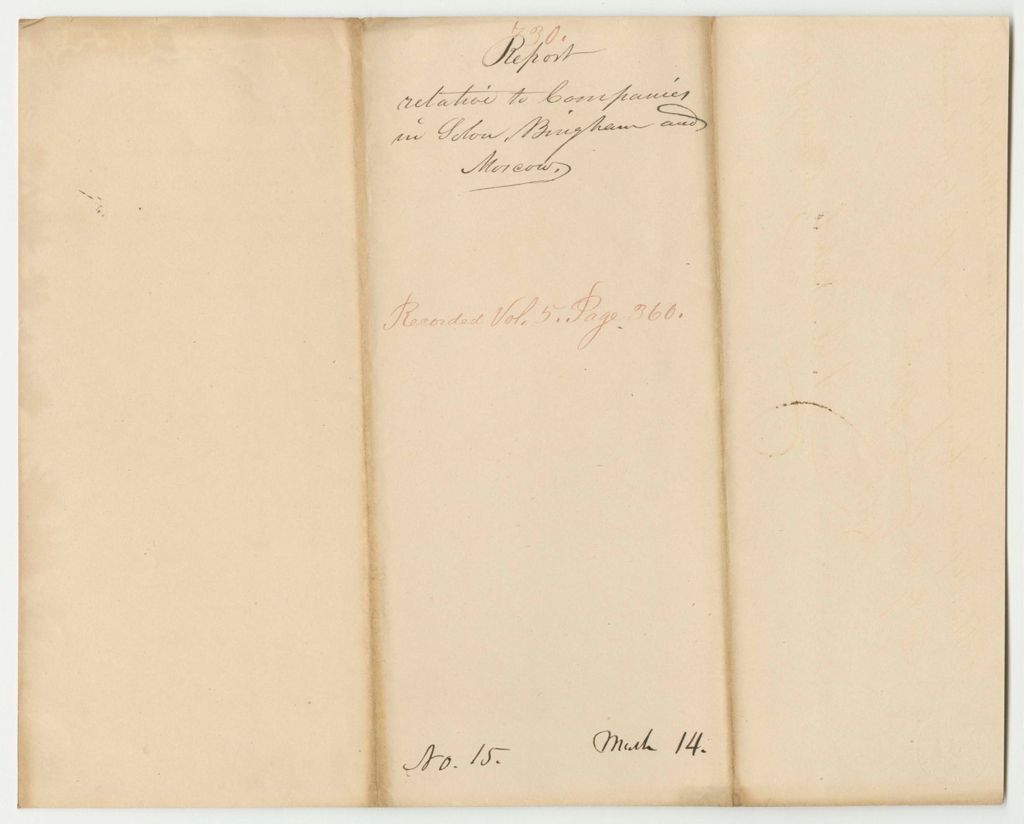 730.
Report
relative to Companies
in Solon, Bingham and
Moscow.
Recorded Vol. 5. Page 360.
No. 15.
March 14.